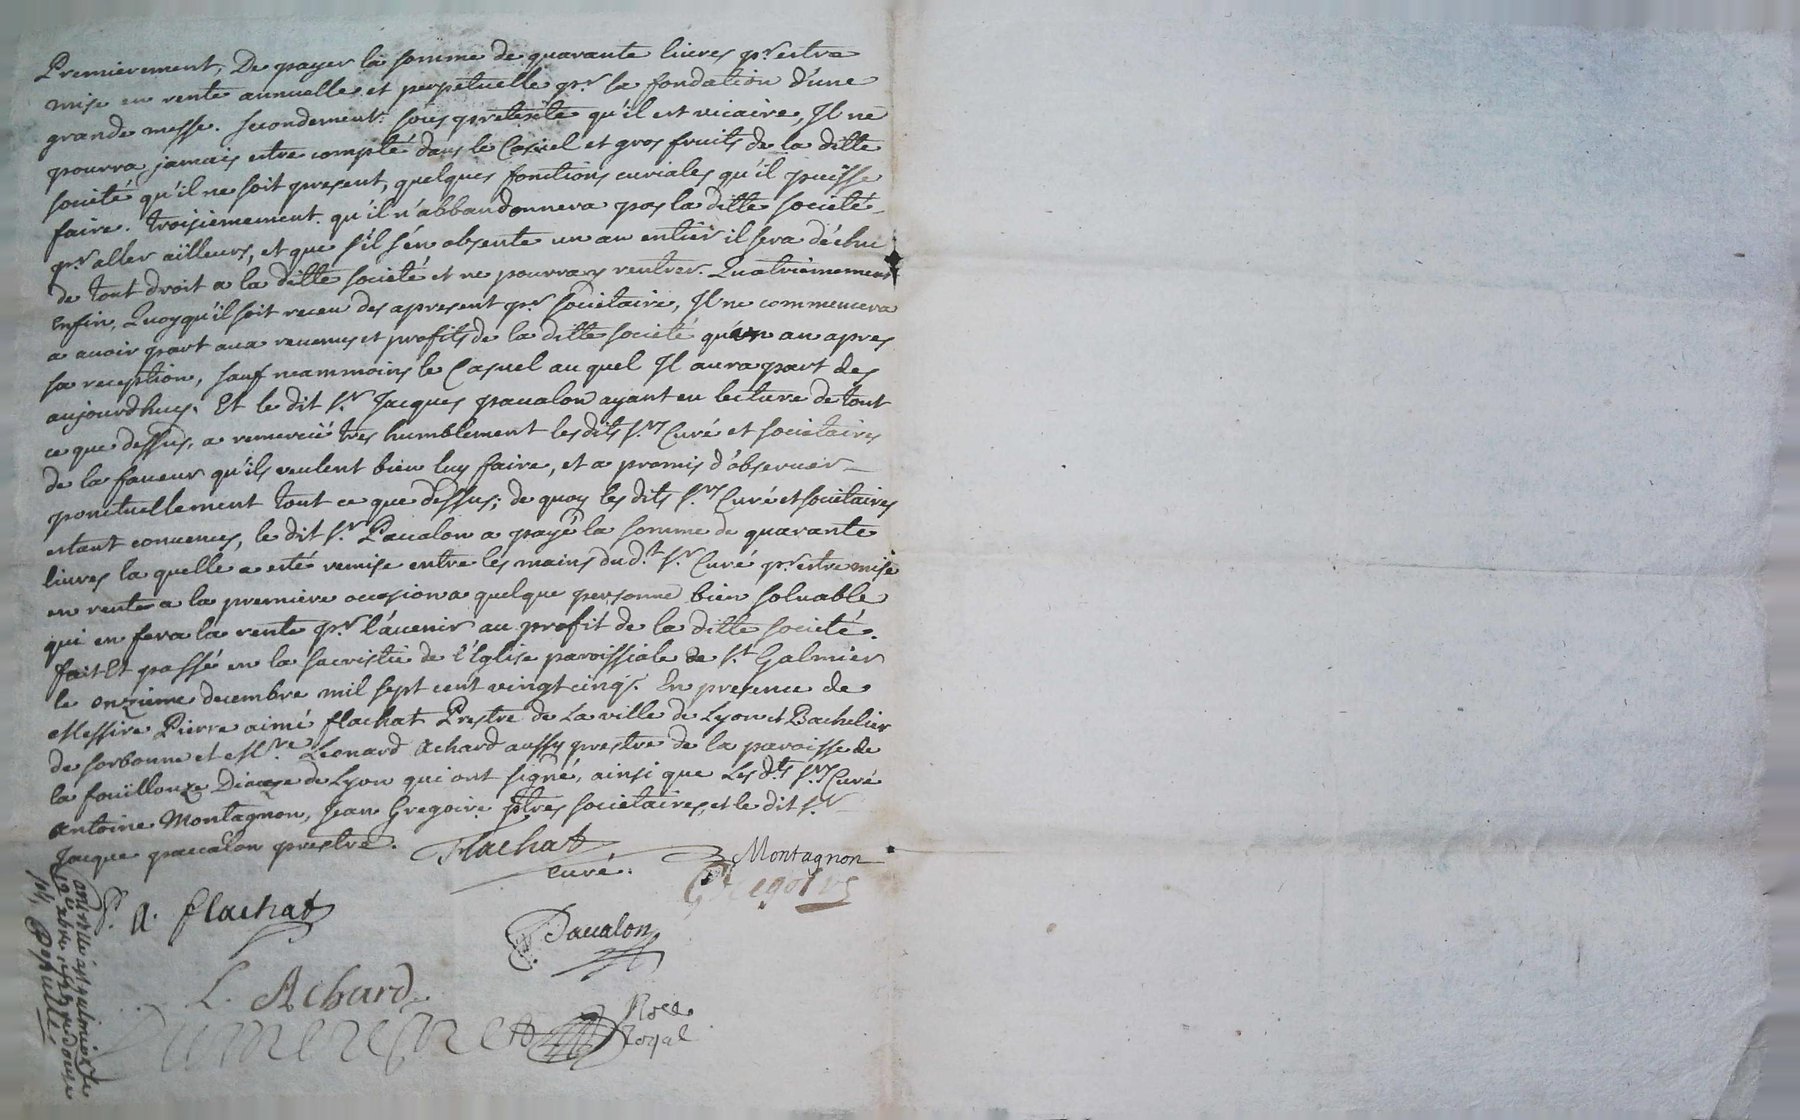 Premierement, De payer la somme de quarante livres pr. estre
mise en rente annuelle et perpetuelle pr. la fondation d'une
grande messe. secondement. sous pretexte qu'il est vicaire, Il ne
pourra jamais estre compté dans le Casuel et gros fruits de la ditte
societé qu'il ne soit present, quelques fonctions curiales qu'il puisse
faire. troisiemement. qu'il n'abbandonnera pas la ditte societé
pr. aller ailleurs, et que s'il s'en absente un an entier il sera déchu
de tout droit a la ditte societé et ne pourra y rentrer. Quatriemement
Enfin, Quoyqu'il soit receu des apresent pr. societaire, Il ne commencera
a avoir part aux revenus et profits de la ditte societé qu'un an apres
sa reception, sauf neammoins le Casuel au quel Il aura part des
aujourdhuy. Et le dit sr. Jacques pavalon ayant eu lecture de tout
ce que dessus, a remercié tres humblement les dits srs. Curé et societaires
de la faveur qu'ils veulent bien luy faire, et a promis d'observer
ponctuellement tout ce que dessus; de quoy les dits srs. Curé et societaires
estant convenus, le dit sr. Pavalon a payé la somme de quarante
livres la quelle a esté remise entre les mains du dt. sr. Curé pr. estre mise
en rente a la premiere occasion a quelque personne bien solvable
qui en fera la rente pr. l'avenir au profit de la ditte societé.
fait Et passé en la sacristie de l'Eglise paroissiale de st. Galmier
le onzieme decembre mil sept cent vingt cinq. En presence de
Messire Pierre aimé flachat Prestre de la ville de Lyon et Bachelier
de sorbonne et Mre. Leonard Achard aussy prestre de la paroisse de
la fouillouze Diocese de Lyon qui ont signé, ainsi que Les dts. srs. Curé
Antoine Montagnon, Jean Gregoire ptres societaires, et le dit sr.
Jacque pavalon prestre.
Flachat
curé.
Montagnon
Gregoire
P. A. flachat
Pavalon
L. Achard
Rore
Royal